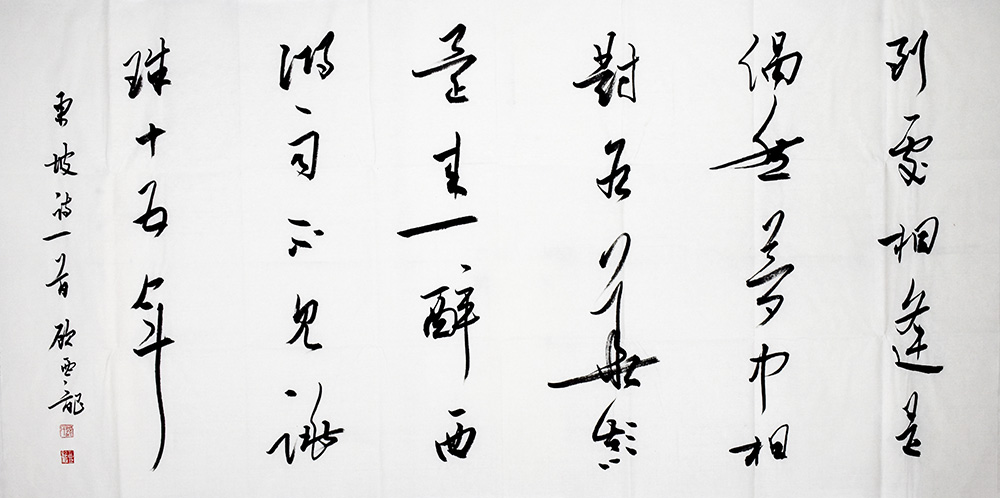 到處相逢是
偶然夢中相
對各華顛
還來一醉西
湖雨不見跳
珠十五年
東坡詩一首